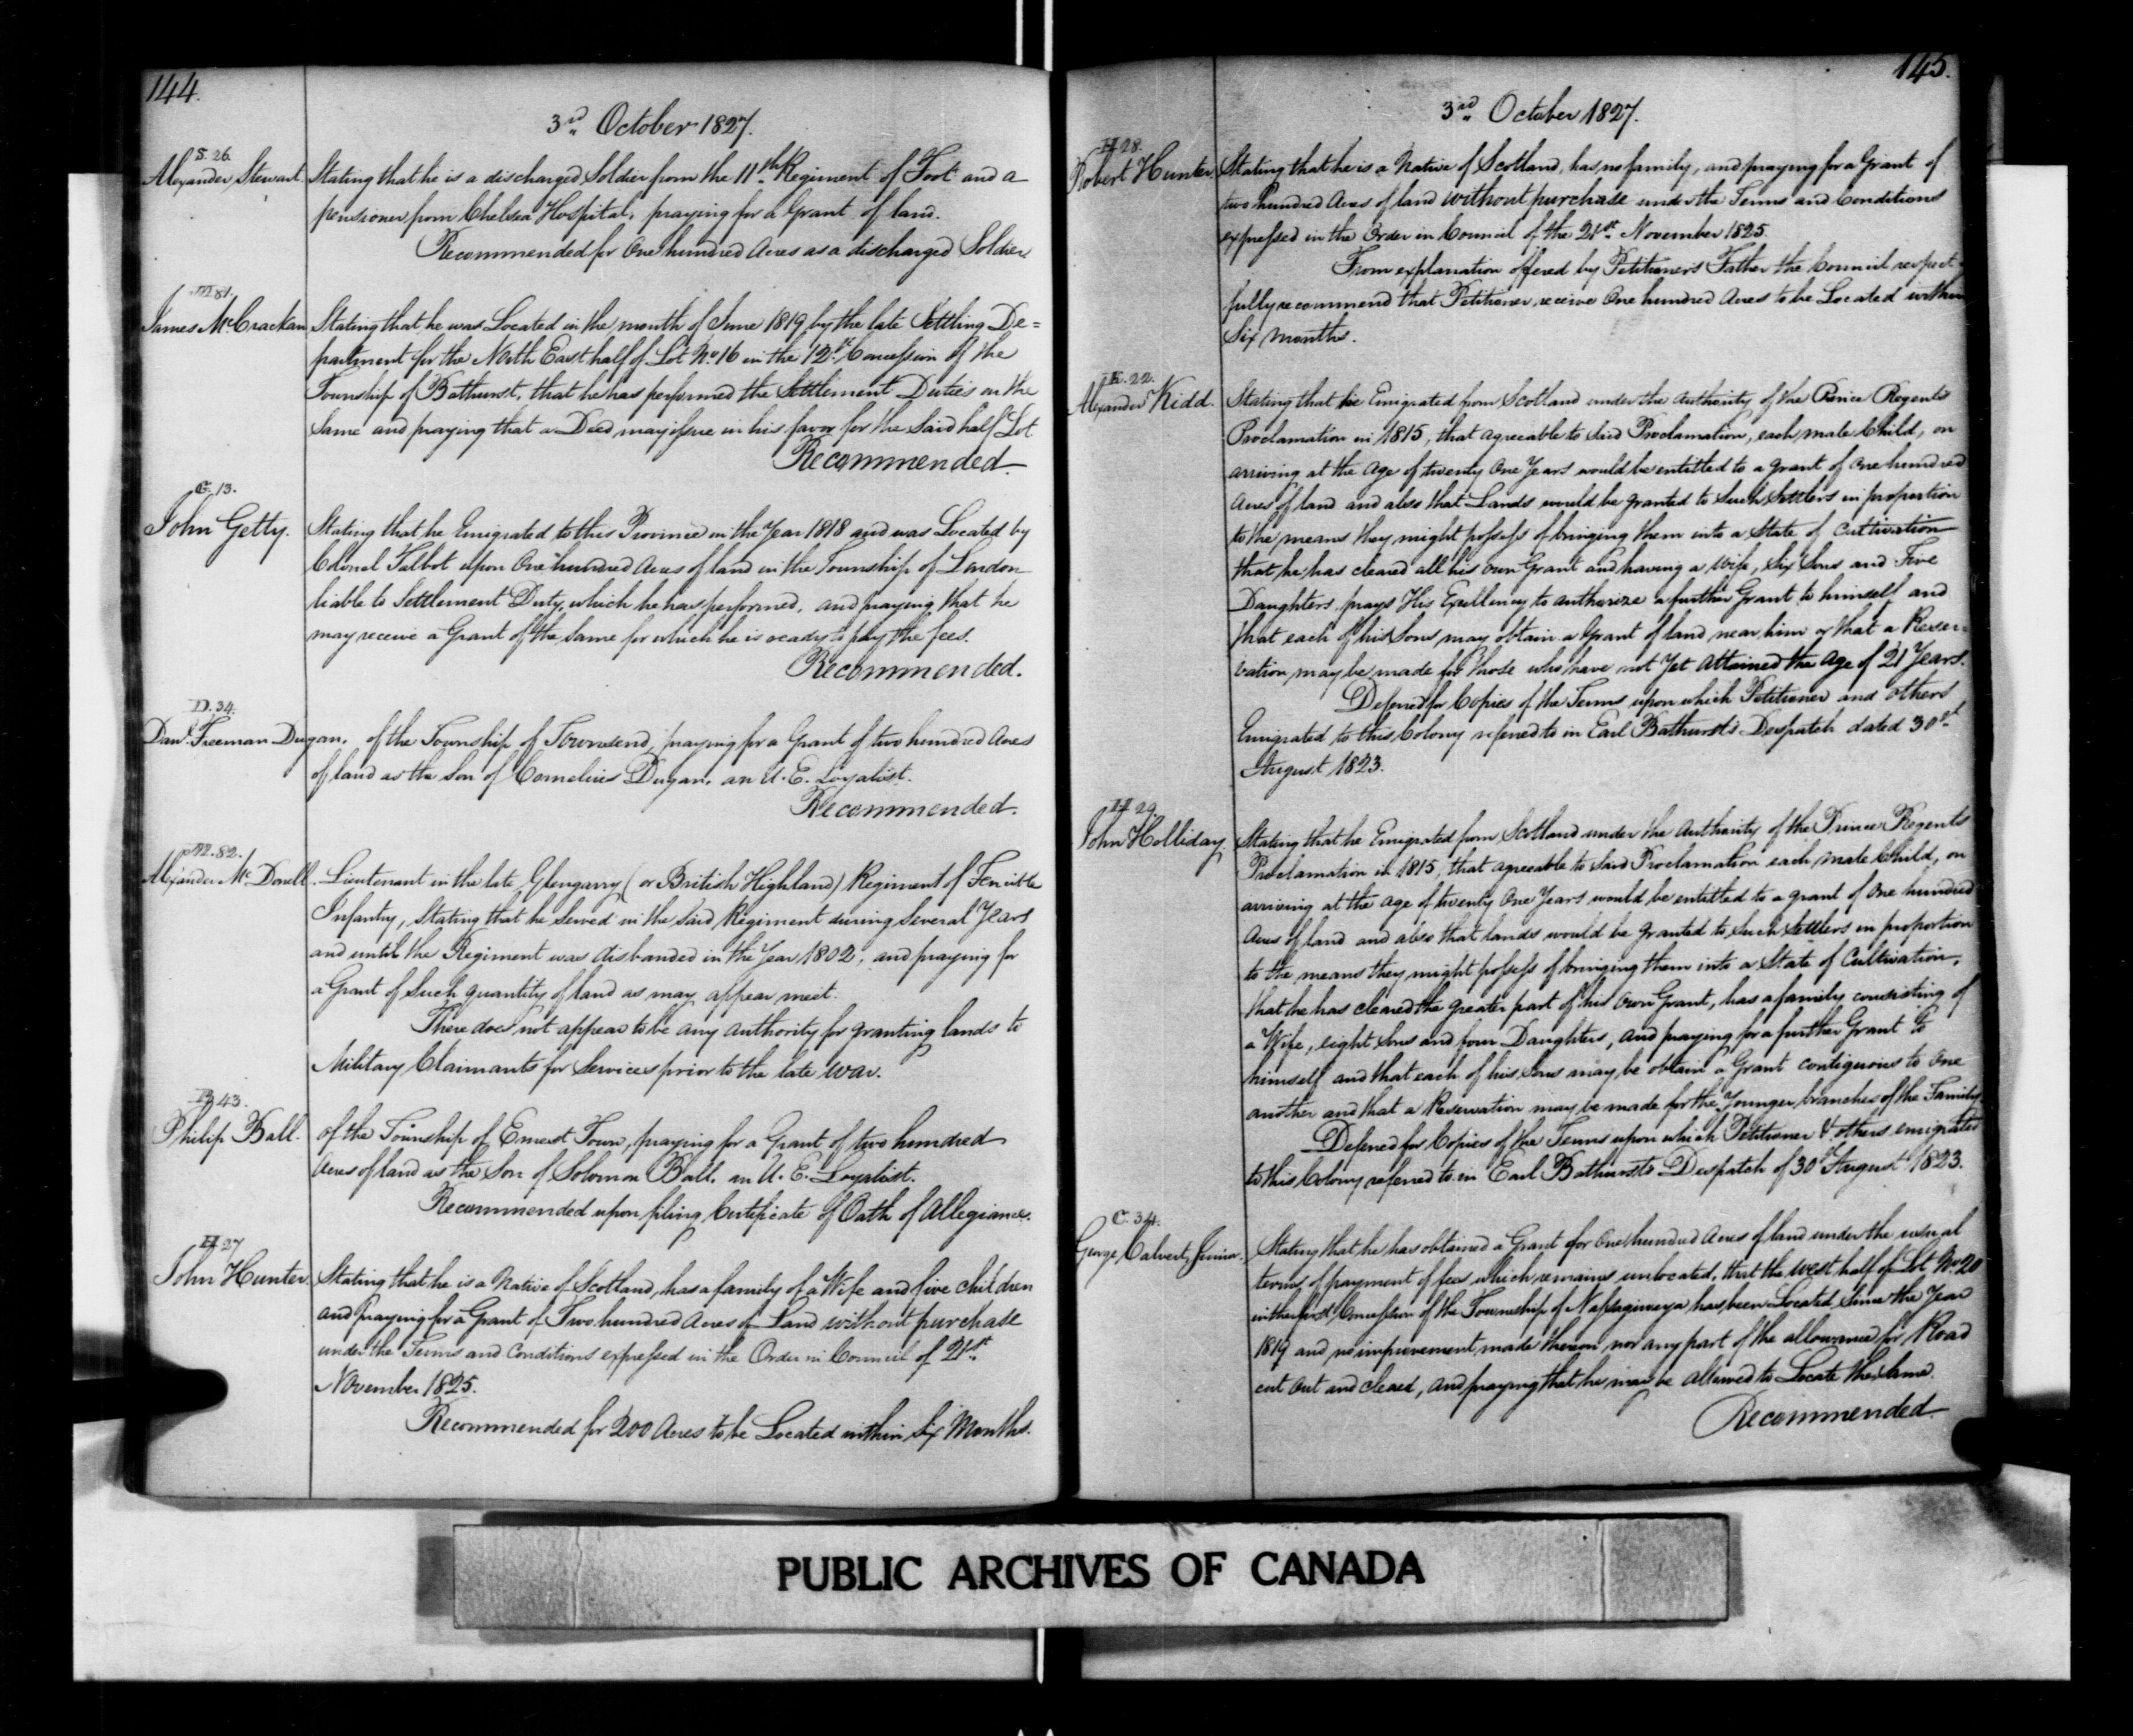 144.
3rd October 1827.
S. 26.
Alexander Stewart
Stating that he is a discharged Soldier from the 11th Regiment of Foot and a
pensioner from Chelsea Hospital, praying for a Grant of land.
Recommended for One hundred Acres as a discharged Soldier
M 81.
James McCrackan
Stating that he was Located in the month of June 1819 by the late Settling De=
partment for the North East half of Lot No. 16 in the 12th Concession of the
Township of Bathurst, that he has performed the Settlement Duties on the
Same and praying that a Deed may issue in his favor for the Said half Lot
Recommended
G. 13.
John Getty.
Stating that he Emigrated to this Province in the Year 1818 and was Located by
Colonel Talbot upon One hundred Acres of land in the Township of London
liable to Settlement Duty, which he has performed, and praying that he
may receive a Grant of the Same for which he is ready to pay the fees.
Recommended.
D. 34.
Danl. Freeman Dugan.
of the Township of Townsend, praying for a Grant of two hundred Acres
of land as the Son of Cornelius Dugan, an U.E. Loyalist.
Recommended.
M. 82.
Alexander McDonell.
Lieutenant in the late Glengarry (or British Highland) Regiment of Fencible
Infantry, Stating that he Served in the Said Regiment during Several Years
and until the Regiment was disbanded in the Year 1802, and praying for
a Grant of Such quantity of land as may appear meet.
There does not appear to be any authority for granting lands to
Military Claimants for Services prior to the late War.
B 43.
Philip Ball.
of the Township of Ernest Town, praying for a Grant of two hundred
Acres of land as the Son of Solomon Ball, an U.E. Loyalist.
Recommended upon filing Certificate of Oath of Allegiance.
H 27
John Hunter
Stating that he is a Native of Scotland, has a family of a Wife and five children
and Praying for a Grant of Two hundred Acres of Land without purchase
under the Terms and Conditions expressed in the Order in Council of 21st
November 1825.
Recommended for 200 Acres to be Located within Six Months.
145.
3rd October 1827.
H 28.
Robert Hunter.
Stating that he is a Native of Scotland, has no family, and praying for a Grant of
two hundred Acres of land without purchase under the Terms and Conditions
expressed in the Order in Council of the 21st November 1825.
From explanation offered by Petitioners Father the Council respect
fully recommend that Petitioner receive One hundred Acres to be Located within
Six months.
K. 22.
Alexander Kidd.
Stating that he Emigrated from Scotland under the Authority of the Prince Regents
Proclamation in 1815, that agreeable to Said Proclamation, each male Child, on
arriving at the Age of twenty One Years would be entitled to a grant of One hundred
Acres of land and also that Lands would be granted to Such Settlers in proportion
to the means they might possess of bringing them into a State of Cultivation
that he has cleared all his own Grant and having a Wife, Six Sons and Five
Daughters, prays His Excellency to authorize a further Grant to himself and
that each of his Sons may obtain a Grant of land near him or that a Reser-
vation may be made for those who have not Yet Attained the Age of 21 Years.
Deferred for Copies of the Terms upon which Petitioner and others
Emigrated to this Colony referred to in Earl Bathurst's Despatch dated 30th
August 1823.
H 29.
John Holliday.
Stating that he Emigrated from Scotland under the Authority of the Prince Regents
Proclamation in 1815, that agreeable to Said Proclamation each Male Child, on
arriving at the Age of twenty One Years would be entitled to a grant of One hundred
Acres of land and also that lands would be granted to Such Settlers in proportion
to the means they might possess of bringing them into a State of Cultivation,
that he has cleared the greater part of his Own Grant, has a family consisting of
a Wife, eight Sons and four Daughters, and praying for a further Grant to
himself and that each of his Sons may be obtain a Grant contiguous to One
another and that a Reservation may be made for the Younger branches of the Family
Deferred for Copies of the Terms upon which Petitioner & others emigrated
to this Colony referred to in Earl Bathursts Despatch of 30th August 1823.
C. 34.
George Calvert, Junior.
Stating that he has obtained a Grant for One hundred Acres of land under the usual
terms of payment of fees which remains unlocated, that the West half of Lot No. 20
in the first Concession of the Township of Nassagiweya has been Located Since the Year
1819 and no improvement made thereon nor any part of the allowance for Road
cut out and cleared, and praying that he may be allowed to Locate the Same.
Recommended
PUBLIC ARCHIVES OF CANADA